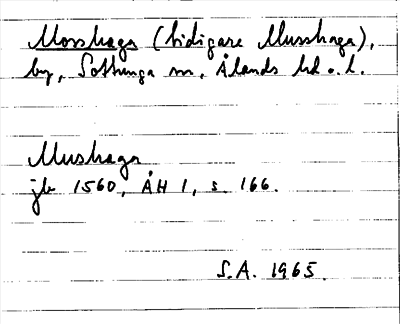 Mosshaga (tidigare Musshaga),
by, Sottunga sn, Ålands hd o. l.
Mushaga
jb 1560, ÅH 1, s. 166.
S.A. 1965.